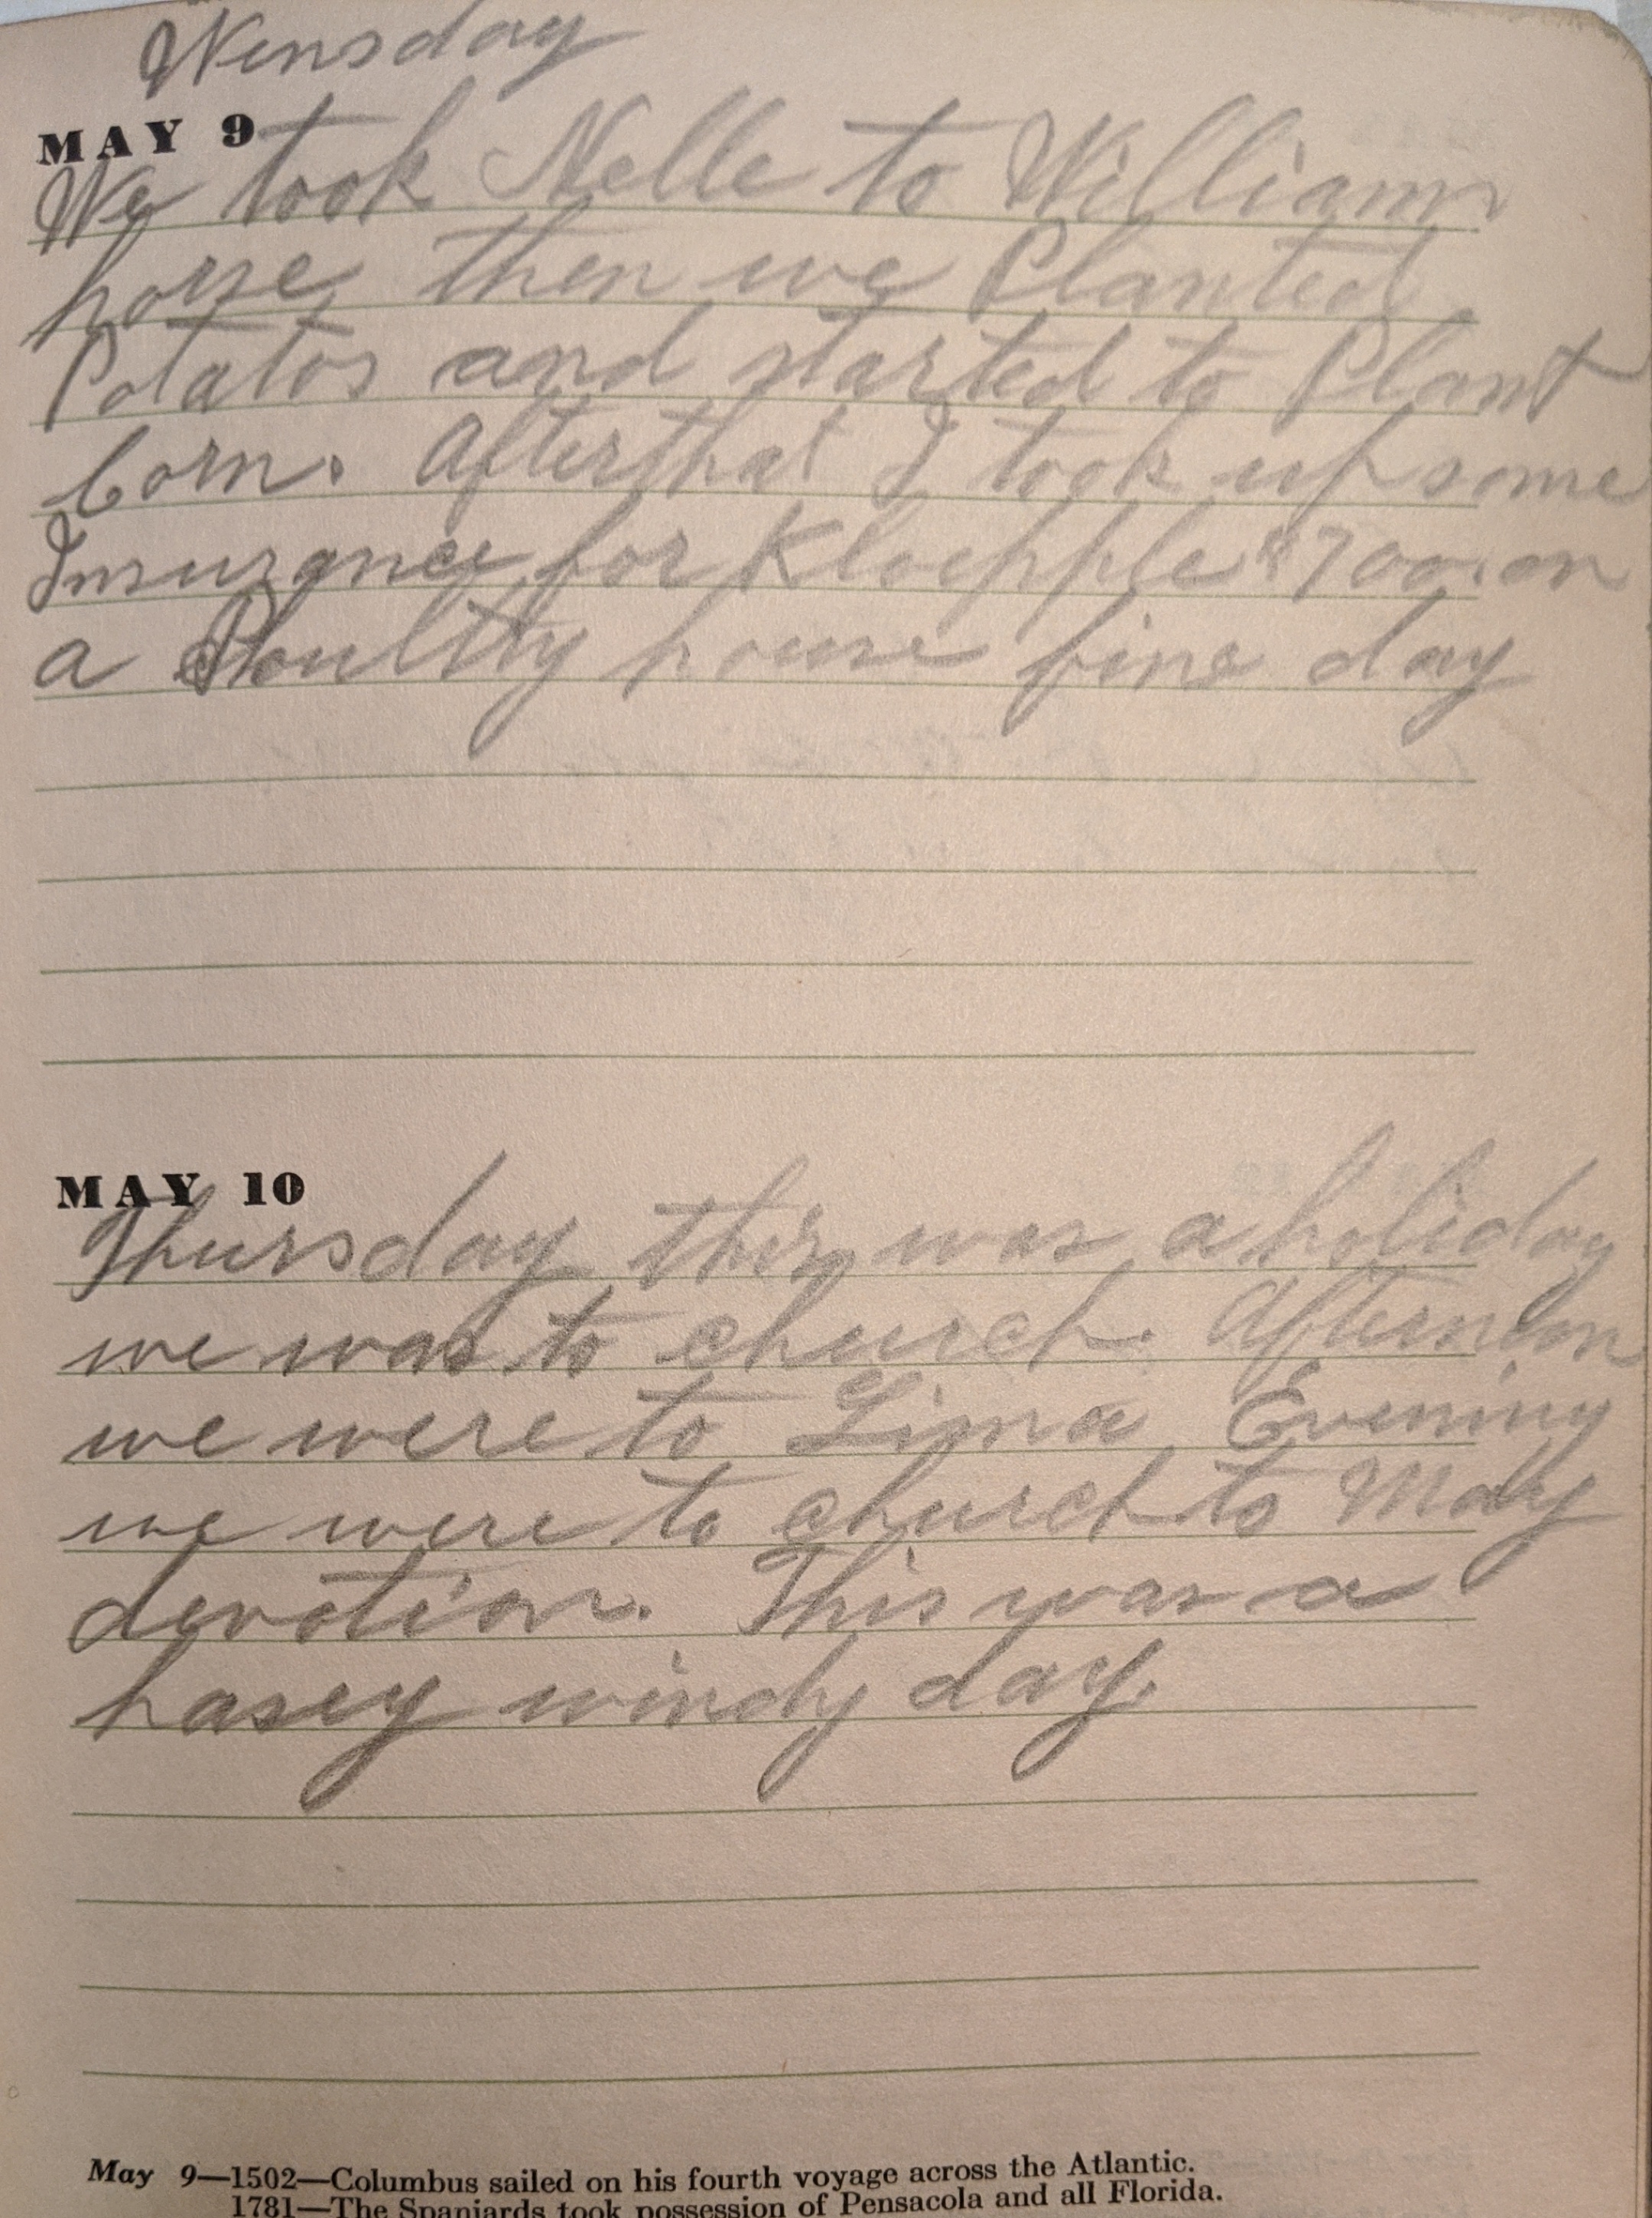 Wensday
MAY 9
We took Nelle to Williams
horse then we Planted
Potatos and started to Plant
Corn. Afterthat I took up some
Insurance for Kloepple $700. on
a Poultry house fine day
MAY 10
Thursday this was a holiday
we was to church. Afternoon
we were to Lima Evening
we were to church to May
devotion. This was a
hasey windy day.
May 9—1502—Columbus sailed on his fourth voyage across the Atlantic.
1781—The Spaniards took possession of Pensacola and all Florida.